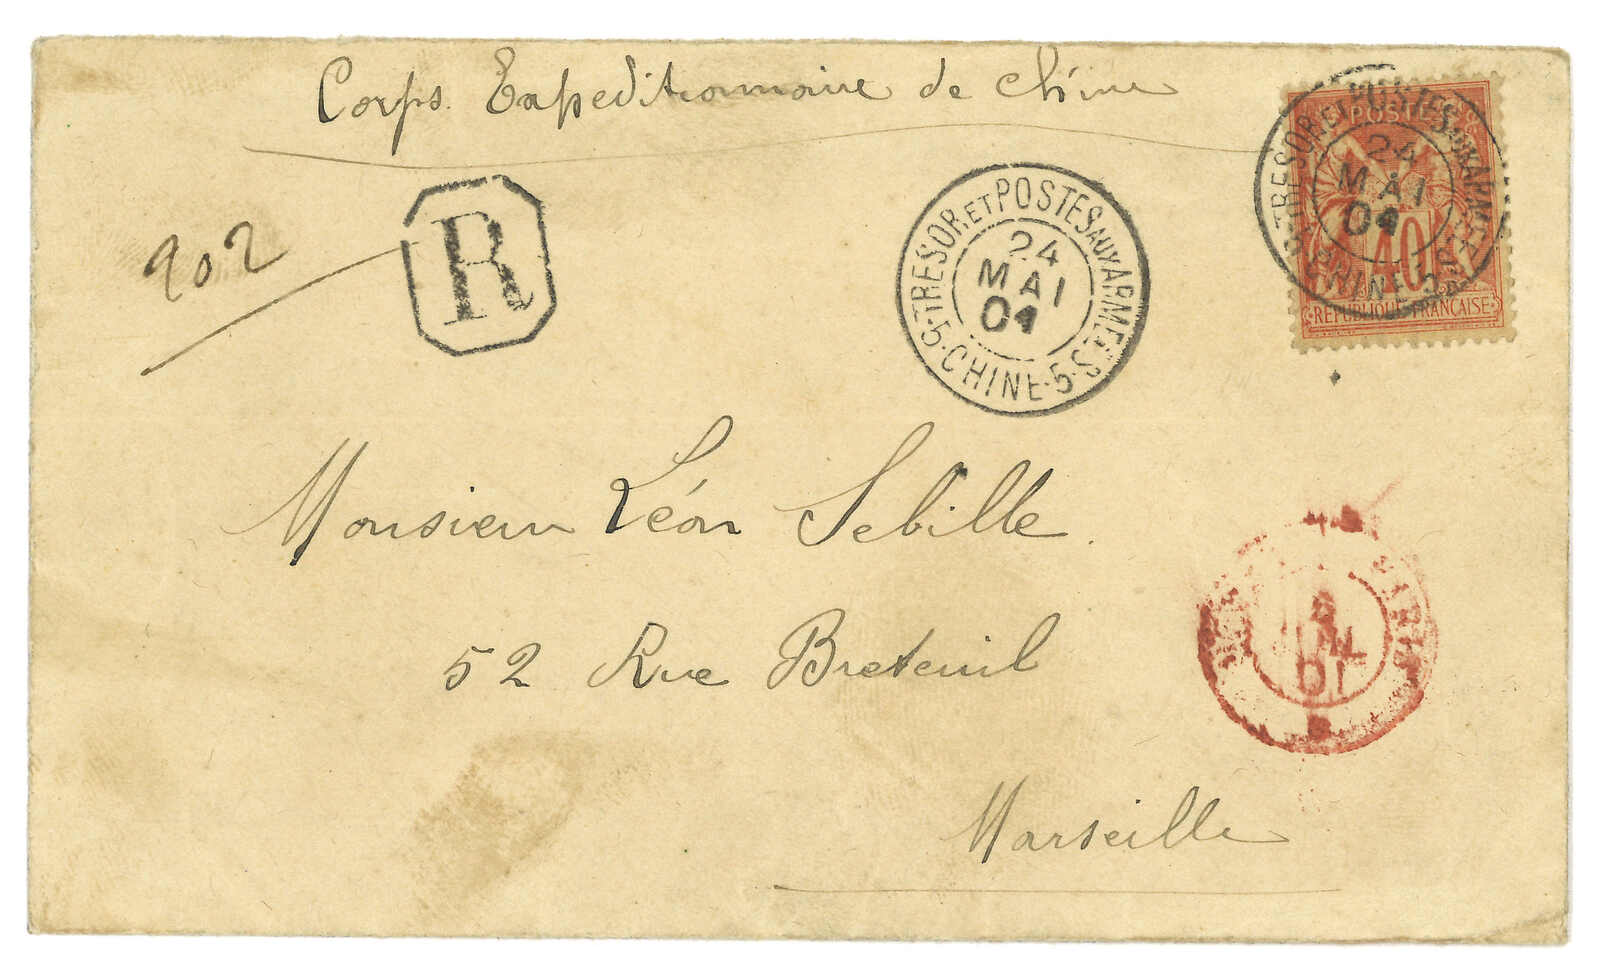 Corps Expeditionnaire de Chine
902
R
TRESOR ET POSTES AUX ARMEES
24
MAI
01
5 · CHINE · 5
POSTES
TRESOR ET POSTES AUX ARMEES
24
MAI
01
CHINE
40
REPUBLIQUE FRANÇAISE
Monsieur Léon Sebille
52 Rue Breteuil
Marseille
PARIS
JUIL
01